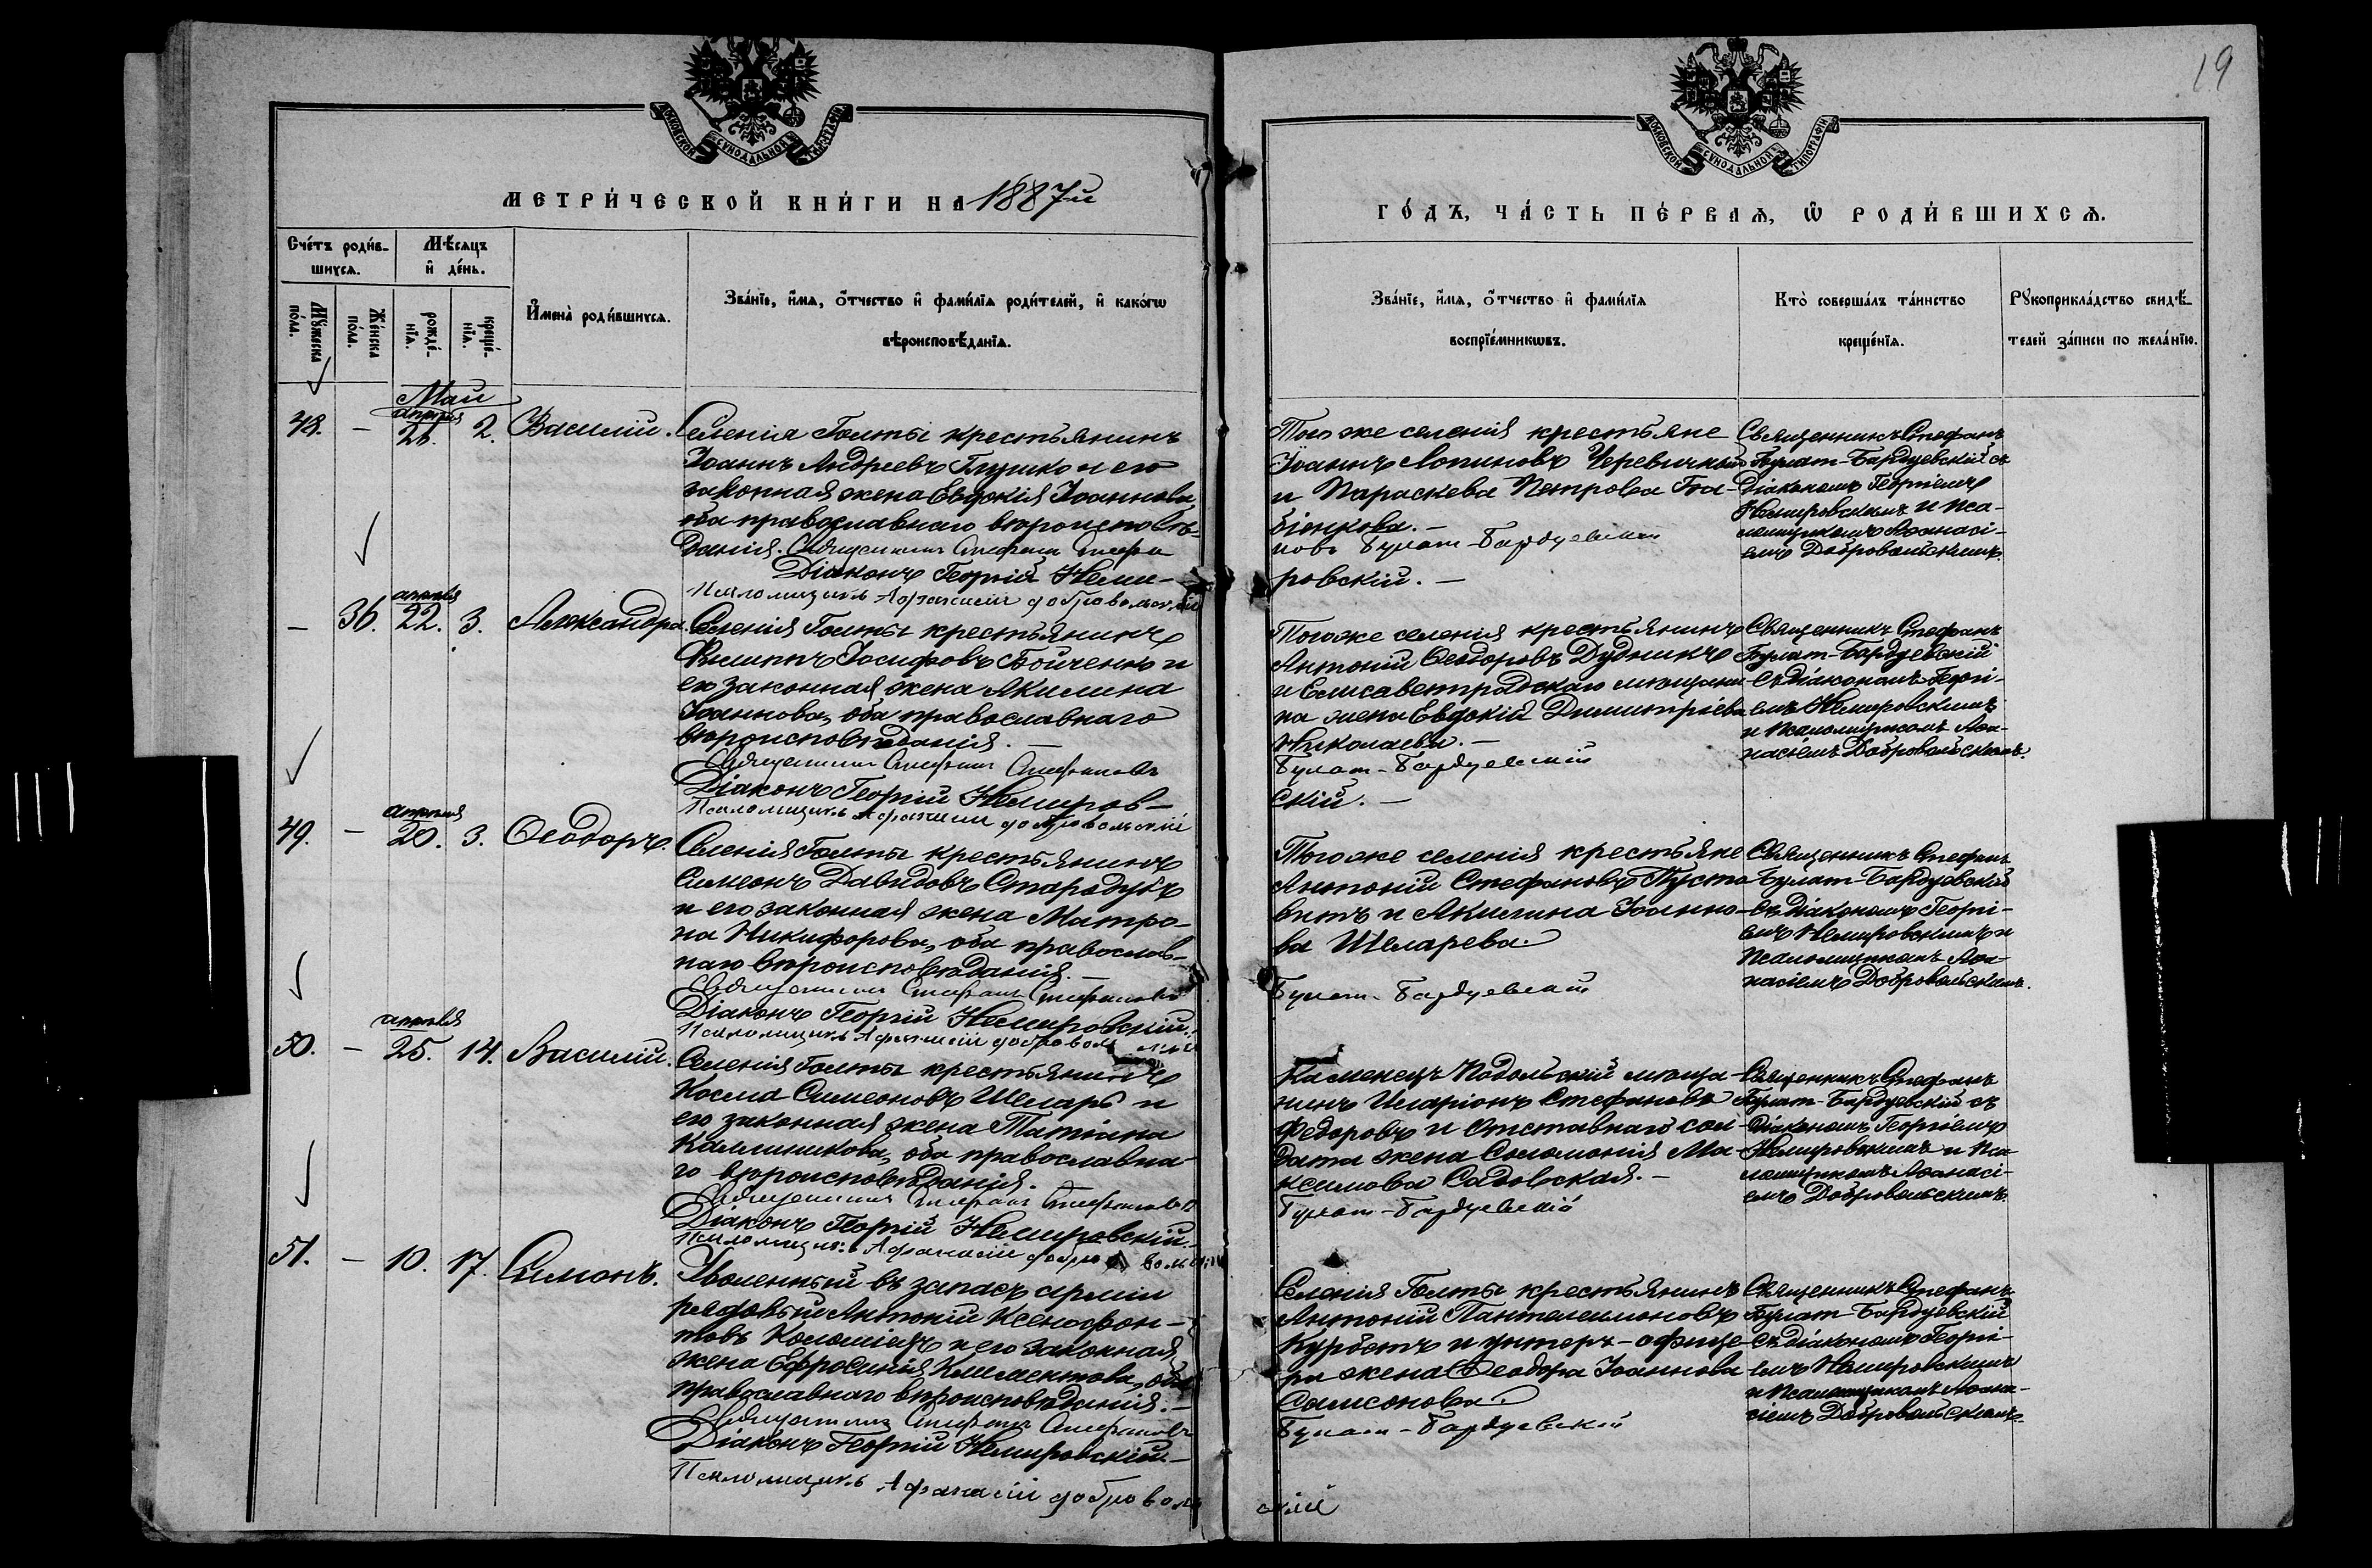 19
МОСКОВСКОЙ СѴНОДАЛЬНОЙ ТИПОГРАФІИ
МОСКОВСКОЙ СѴНОДАЛЬНОЙ ТИПОГРАФІИ
МЕТРИ́ЧЕСКОЙ КНИ́ГИ НА 1887й
ГО́ДЪ, ЧА́СТЬ ПЕ́РВАѦ, Ѡ РОДИ́ВШИХСѦ.
Сче́тъ роди́в-
шихсѧ.
Мѣ́сѧцъ
и҆ де́нь.
Мꙋ́жеска по́ла.
Же́нска по́ла.
рожде́-нїѧ.
креще́-нїѧ.
И҆мена̀ роди́вшихсѧ.
Зва́нїе, и҆́мѧ, о҆́тчество и҆ фами́лїѧ роди́телей, и҆ како́гѡ
вѣроисповѣ́данїѧ.
Зва́нїе, и҆́мѧ, о҆́тчество и҆ фами́лїѧ
воспрїе́мникѡвъ.
Кто̀ соверша́лъ та́инство
креще́нїѧ.
Рꙋкоприкла́дство свидѣ́-
телей за́писи по жела́нїю.
Май
апрѣля
48. — 26. 2. Василій.
Селенія Голты крестьянинъ
Іоаннъ Андреевъ Глушко и его
законная жена Евдокія Іоаннова,
оба православнаго вѣроисповѣ-
данія. Священникъ Стефанъ Стефа
Діаконъ Георгій Неми-
Псаломщикъ Афанасій Добровольскій
Того же селенія крестьяне
Іоаннъ Логиновъ Черевичный
и Параскева Петрова Гра-
бенкова. —
новъ Булат-Бардуевскій
ровскій. —
Священникъ Стефанъ
Булат-Бардуевскій съ
Діакономъ Георгіемъ
Немировскимъ и пса-
ломщикомъ Аѳанасі-
емъ Добровольскимъ.
апрѣля
— 36. 22. 3. Александра.
Селенія Голты крестьянинъ
Филиппъ Іосифовъ Бойченко и
его законная жена Акилина
Іоаннова, оба православнаго
вѣроисповѣданія. —
Священникъ Стефанъ Стефановъ
Діаконъ Георгій Немиров-
Псаломщикъ Афанасій Добровольскій
Того же селенія крестьянинъ
Антоній Ѳеодоровъ Дудникъ
и Елисаветградскаго мѣщани-
на жена Евдокія Димитріева
Николаева. —
Булат-Бардуевскій
скій. —
Священникъ Стефанъ
Булат-Бардуевскій
съ Діакономъ Георгі-
емъ Немировскимъ
и псаломщикомъ Аѳа-
насіемъ Добровольскимъ.
апрѣля
49. — 20. 3. Ѳеодоръ.
Селенія Голты крестьянинъ
Симеонъ Давидовъ Стародубъ
и его законная жена Матро-
на Никифорова, оба православ-
наго вѣроисповѣданія. —
Священникъ Стефанъ Стефановъ
Діаконъ Георгій Немировскій.
Псаломщикъ Афанасій Добровольскій
Того же селенія крестьяне
Антоній Стефановъ Пусто-
витъ и Акилина Іоанно-
ва Шеларева.
Булат-Бардуевскій
Священникъ Стефанъ
Булат-Бардуевскій
съ Діакономъ Георгі-
емъ Немировскимъ и
псаломщикомъ Аѳа-
насіемъ Добровольскимъ.
апрѣля
50. — 25. 14. Василій.
Селенія Голты крестьянинъ
Косма Симеоновъ Шеларь и
его законная жена Татіана
Каллиникова, оба православна-
го вѣроисповѣданія.
Священникъ Стефанъ Стефановъ
Діаконъ Георгій Немировскій.
Псаломщикъ Афанасій Добровольскій
Каменецъ Подольскій мѣща-
нинъ Иларіонъ Стефановъ
Федоровъ и отставнаго сол-
дата жена Соломонія Ма-
ксимова Садовская. —
Булат-Бардуевскій
Священникъ Стефанъ
Булат-Бардуевскій съ
Діакономъ Георгіемъ
Немировскимъ и пса-
ломщикомъ Аѳанасі-
емъ Добровольскимъ.
51. — 10. 17. Симонъ.
Уволенный въ запасъ арміи
рядовый Антоній Ксенофон-
товъ Коломіецъ и его законная
жена Ефросинія Климентова, оба
православнаго вѣроисповѣданія. —
Священникъ Стефанъ Стефановъ
Діаконъ Георгій Немировскій —
Псаломщикъ Афанасій Доброволь
Селенія Голты крестьянинъ
Антоній Пантелеимоновъ
Курбетъ и унтеръ-офице-
ра жена Ѳеодора Іоаннова
Самсонова.
Булат-Бардуевскій
скій
Священникъ Стефанъ
Булат-Бардуевскій
съ Діакономъ Георгі-
емъ Немировскимъ
и псаломщикомъ Аѳана-
сіемъ Добровольскимъ.